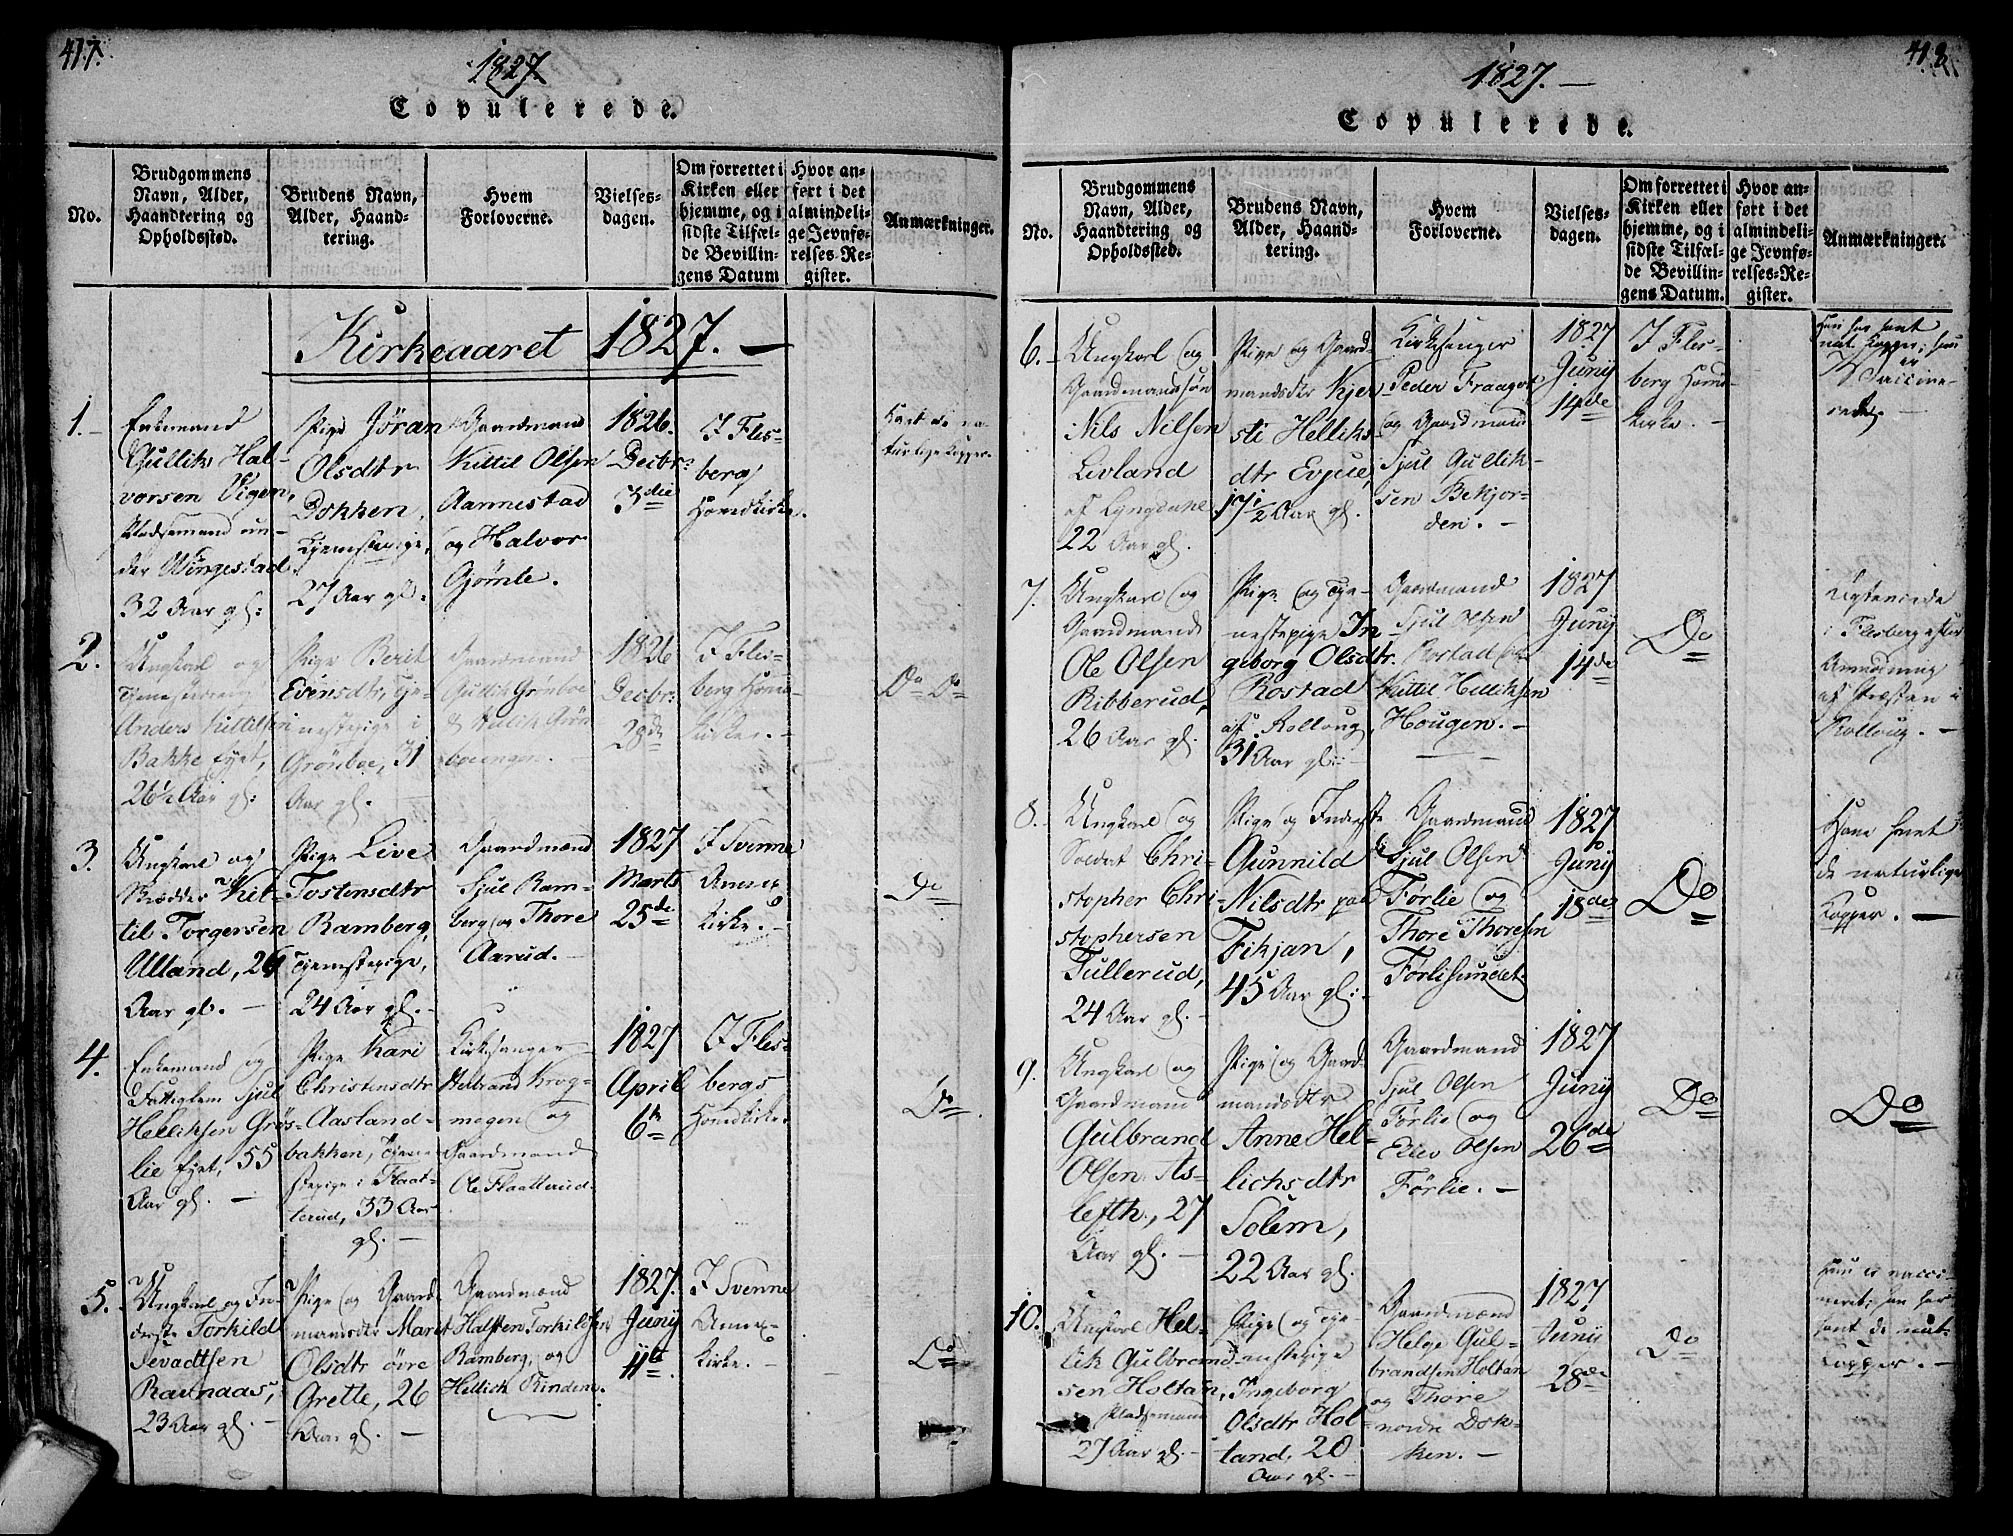 417.
1827
Copulerede.
No.
Brudgommens
Navn, Alder,
Haandtering og
Opholdssted.
Brudens Navn,
Alder, Haand-
tering.
Hvem
Forloverne.
Vielses-
dagen.
Om forrettet i
Kirken eller
hjemme, og i
sidste Tilfæl-
de Bevillin-
gens Datum
Hvor an-
ført i det
almindeli-
ge Jevnfø-
relses-Re-
gister.
Anmærkninger.
Kirkeaaret 1827. —
1. –
Enkemand
Gullik Hal-
vorsen Vigen,
Pladsemand un-
der Wingestad
32 Aar gl:
Pige Jøran
Olsdtr
Dokken,
Tjenestepige,
27 Aar gl.
Gaardmand
Kittil Olsen
Aannestad
og Halvor
Gjømle.
1826.
Decbr:
3die
I Fles-
berg
Hovedkirke.
Havt de na-
turlige Kopper.
2.
Ungkarl og
Tjenestedreng
Anders Kittilsen
Bakke Eyet,
26½ Aar gl:
Pige Berit
Evensdtr, Tje-
nestepige i
Grönboe, 31
Aar gl. –
Gaardmand
Gullik Grönboe
& Hellik Grön-
boeengen. –
1826
Decbr:
28de
I Fles-
berg Hoved-
kirke. –
Do Do
3.
Ungkarl og
Skrædder Kit-
til Torgersen
Ulland, 26
Aar gl. –
Pige Live
Tostensdtr
Ramberg,
Tjenestepige,
24 Aar gl. –
Gaardmænd
Sjul Ram-
berg og Thore
Aarud. –
1827
Marts
25de
I Svenne
Annex
Kirke. –
Do
4.
Enkemand og
Fattiglem Sjul
Helliksen Grøs-
lie Eyet, 55
Aar gl. –
Pige Kari
Christensdtr
Aasland-
bakken, Tjene-
stepige i Flaat-
terud, 33 Aar
gl. –
Kirkesanger
Helbrand Krog-
mogen og
Gaardmand
Ole Flaatterud.
1827
April
6te
I Fles-
bergs
Hovedkirke.
Do
5. –
Ungkarl og In-
derste Torkild
Sevadtsen
Ravnaas,
23 Aar gl. –
Pige og Gaard-
mandsdtr Marit
Olsdtr övre
Grette, 26
Aar gl. –
Gaardmænd
Halsten Torkildsen
Ramberg, og
Hellich Rinden.
1827.
Juny
11te.
I Svenne
Annex-
kirke. –
Do
418.
1827. —
Copulerede.
No.
Brudgommens
Navn, Alder,
Haandtering og
Opholdssted.
Brudens Navn,
Alder, Haand-
tering.
Hvem
Forloverne.
Vielses-
dagen.
Om forrettet i
Kirken eller
hjemme, og i
sidste Tilfæl-
de Bevillin-
gens Datum.
Hvor an-
ført i det
almindeli-
ge Jevnfø-
relses-Re-
gister.
Anmærkninger.
6. –
Ungkarl og
Gaardmandssøn
Nils Nilsen
Livland
af Lyngdahl
22 Aar gl.
Pige og Gaard-
mandsdtr Kjer-
sti Helliks-
dtr Evjue,
17½ Aar gl.
Kirkesanger
Peder Fraagot
og Gaardmand
Sjul Gullik-
sen Bekjor-
den. –
1827
Juny
14de
I Fles-
berg Hoved-
kirke. –
Han har havt
nat. Kopper; hun
er
Vaccine-
redt. –
7.
Ungkarl og
Gaardmand
Ole Olsen
Ribberud,
26 Aar gl.
Pige og Tje-
nestepige In-
geborg Olsdtr.
Rostad
af Rolloug,
31 Aar gl: –
Gaardmand
Sjul Olsen
Rostad og
Kittil Helliksen
Hougen. –
1827
Juny
14de
Do
i Flesberg efter
Anmodning
af Præsten i
Rolloug. –
8. –
Ungkarl og
Soldat Chri-
stopher Chri-
stophersen
Tullerud,
24 Aar gl. –
Pige og Inderste
Gunnild
Nilsdtr paa
Fikjan,
45 Aar gl: –
Gaardmænd
Sjul Olsen
Førlie og
Thore Thoresen
Førlisundet
1827
Juny
18de
Do
Have havt
de naturlige
Kopper. –
9.
Ungkarl og
Gaardmand
Gulbrand
Olsen As-
lefth., 27
Aar gl. –
Pige og Gaard-
mandsdtr
Anne Hel-
lichsdtr
Solem,
22 Aar gl.
Gaardmænd
Sjul Olsen
Førlie og
Ellev Olsen
Førlie. –
1827
Juny
26de
Do
Do
10.
Ungkarl Hel-
lik Gulbrand-
sen Holtan,
Pladsemand
27 Aar gl. –
Pige og Tje-
nestepige
Ingeborg
Olsdtr Hol-
tand, 20
Aar gl. –
Gaardmænd
Helge Gul-
brandsen Holtan
og Thore
nordre Dok-
ken. –
1827
Juny
28de
Do
Hun er vacci-
neret; han har
havt de nat.
Kopper. –